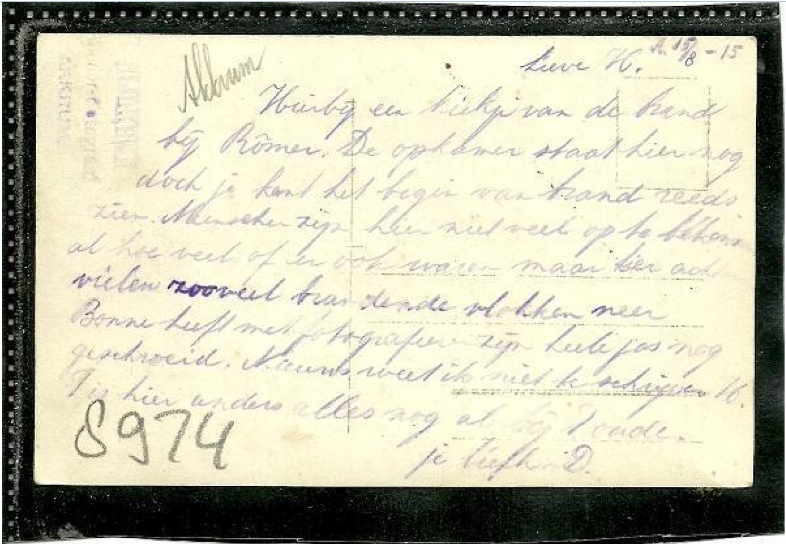 Akkrum
Lieve H. A. 15/8 - 15
Hierbij een kiekje van de brand
bij Römer. De opkamer staat hier nog
doch je kent het begin van brand reeds
zien. Menschen zijn hier niet veel op te bekennen
al hoe veel of er ook waren maar hier achter
vielen zooveel brandende vlokken neer
Bonne heeft met fotografieren zijn heele jas nog
geschroeid. Nieuws weet ik niet te schrijven H.
't is hier anders alles nog al bij 't oude.
je liefh. D.
8974
AKKRUM